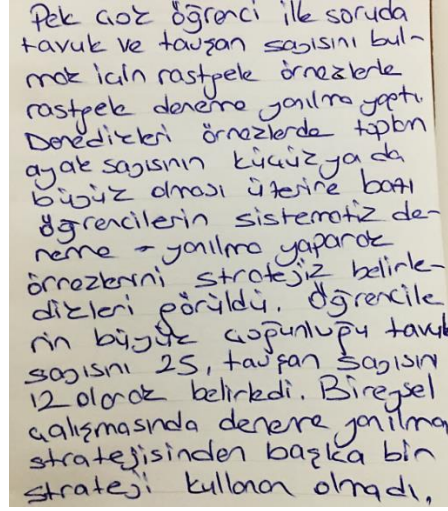 Pek çok öğrenci ilk soruda
tavuk ve tavşan sayısını bul-
mak için rastgele örneklerle
rastgele deneme yanılma yaptı.
Denedikleri örneklerde toplam
ayak sayısının küçük ya da
büyük olması üzerine bazı
öğrencilerin sistematik de-
neme - yanılma yaparak
örneklerini stratejik belirle-
dikleri görüldü. Öğrencile
rin büyük çoğunluğu tavuk
sayısını 25, tavşan sayısın
12 olarak belirledi. Bireysel
çalışmasında deneme yanılma
stratejisinden başka bin
strateji kullanan olmadı.